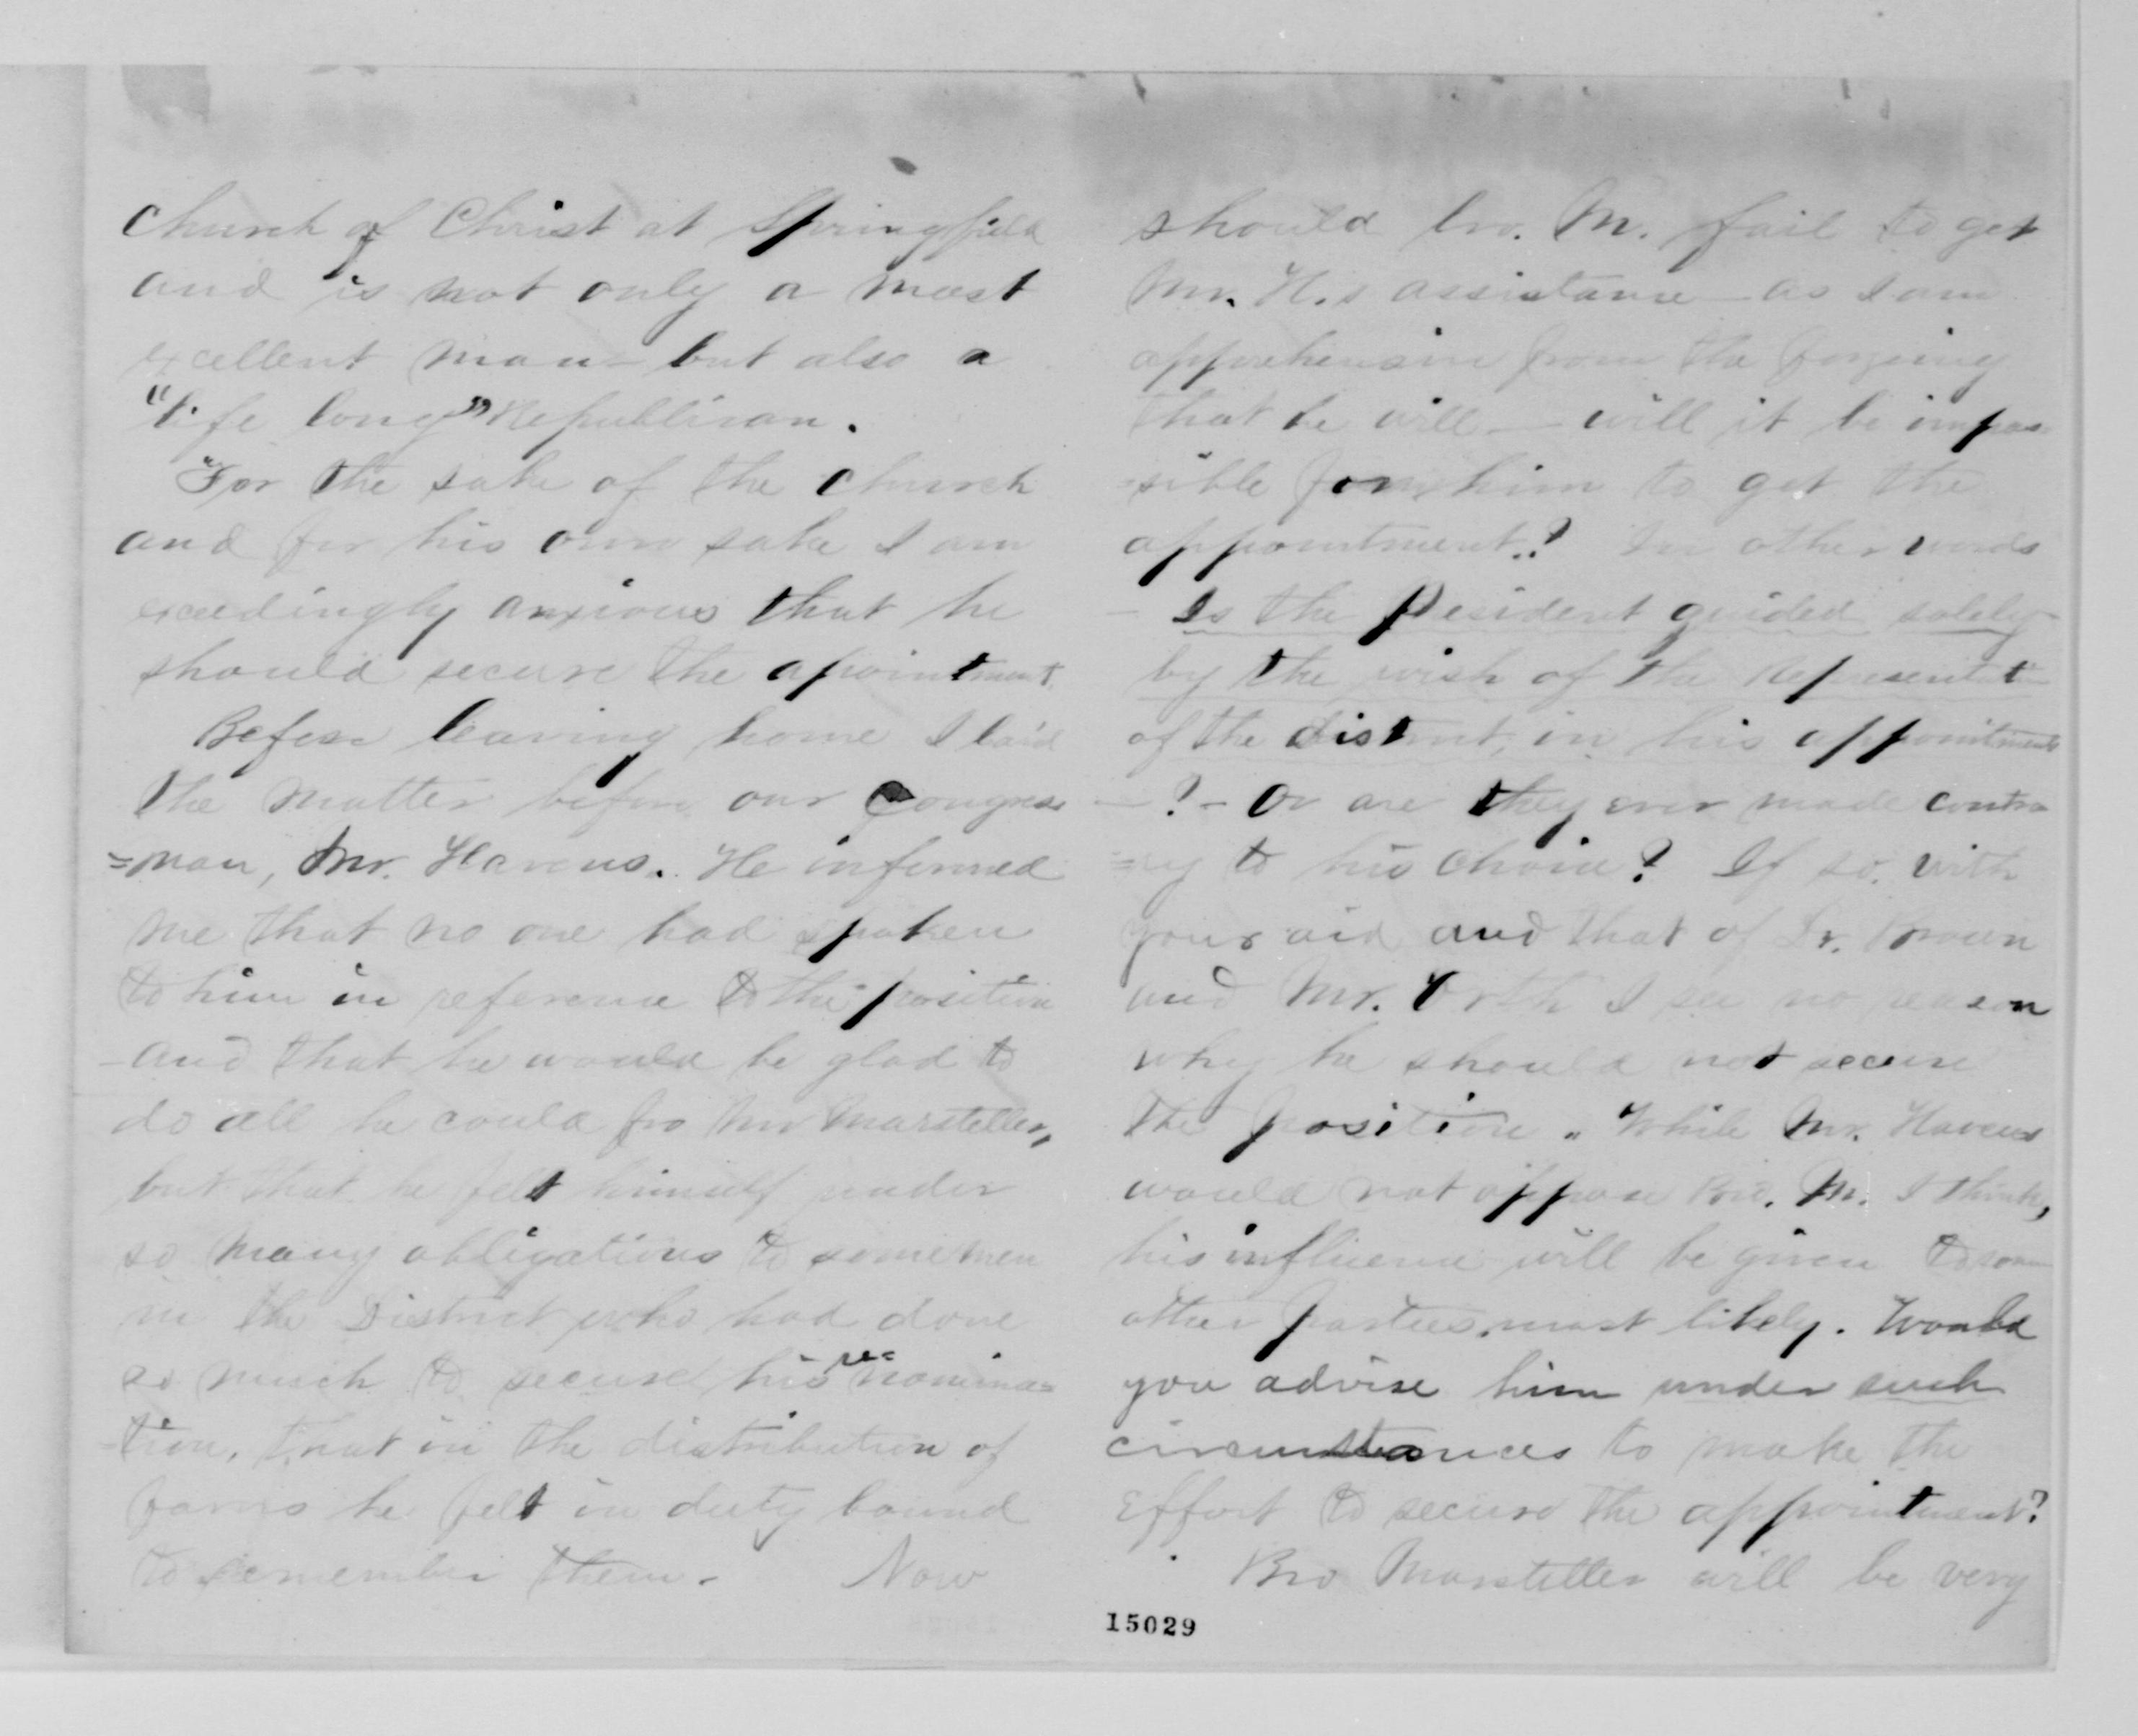 Church of Christ at Springfield
and is not only a most
excellent man - but also a
"life long" Republican.
"For the sake of the church
and for his own sake I am
exceedingly anxious that he
should secure the apointment.
Before leaving home I laid
the matter before our Congress
=man, Mr. Havens. He informed
me that no one had spoken
to him in reference to the position
- and that he would be glad to
do all he could fro Mr Marsteller,
but that he felt himself under
so many obligations to some men
in the District who had done
so much to secure his re= nomina=
=tion, that in the distribution of
favors he felt in duty bound
to remember them. Now
should bro. M. fail to get
Mr. H.s assistance - as I am
apprehensive from the forgoing
that he will - will it be impos
=sible for him to get the
appointment.? In other words
- Is the President guided solely
by the wish of the Representt
of the district, in his appointments
- ? - Or are they ever made contra
=ry to his choice? If so, with
your aid and that of Dr. Brown
and Mr. Orth I see no reason
why he should not secure
the position. While Mr. Havens
would not oppose Bro. M. I think,
his influence will be given to some
other parties, most likely. Would
you advise him under such
circumstances to make the
effort to secure the appointment?
Bro Marsteller will be very
15029